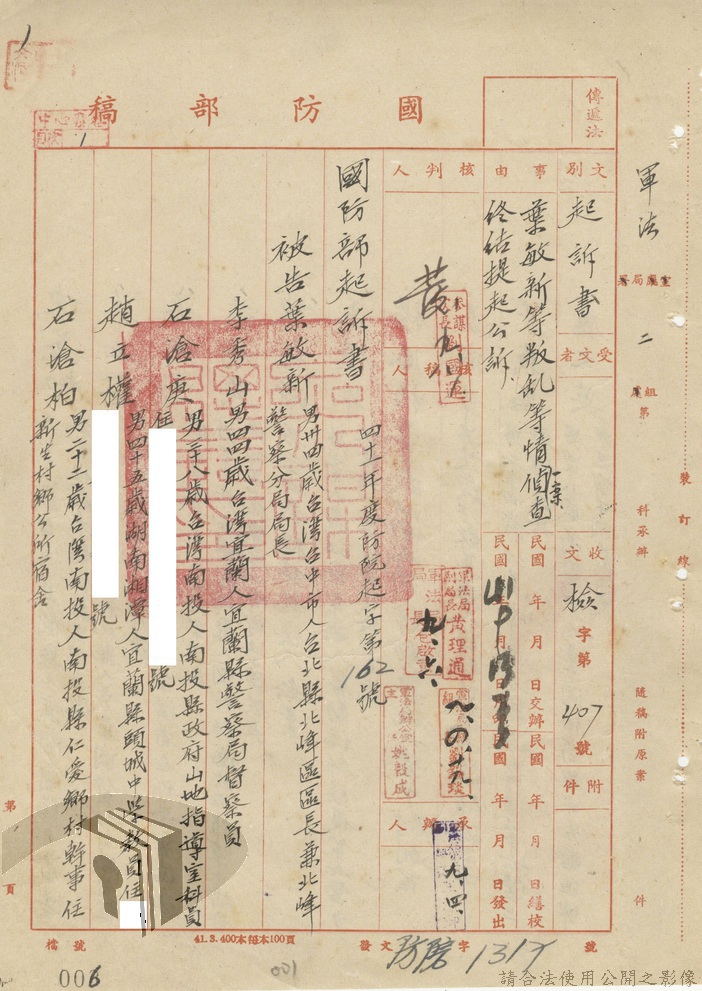 國防部稿
傳遞法
文別
起訴書
受文者
收文
檢字第407號
附件
事由
葉敏新等叛乱等情一案偵查
終結提起公訴
民國 年 月 日交辦
民國 年 月 日繕校
民國 年 月 日發出
核判人
核稿人
承辦人
九、六、
九、四、
黃理通
姚毅成
國防部起訴書
四十一年度防院起字第162號
被告葉敏新 男卅四歲台灣台中市人台北縣北峰區區長兼北峰
警察分局局長
李秀山 男四四歲台灣宜蘭人宜蘭縣警察局督察員
石滄庚 男二十八歲台灣南投人南投縣政府山地指導室科員
住 號
趙立權 男四十五歲湖南湘潭人宜蘭縣頭城中學教員住
號
石滄柏 男二十二歲台灣南投人南投縣仁愛鄉村幹事住
新生村鄉公所宿舍
軍法
室廳局署
二
組處第
科承辦
隨稿附原案
件
裝訂線
第 頁
檔號
41.3.400本每本100頁
發文 字 1317 號
006
001
請合法使用公開之影像